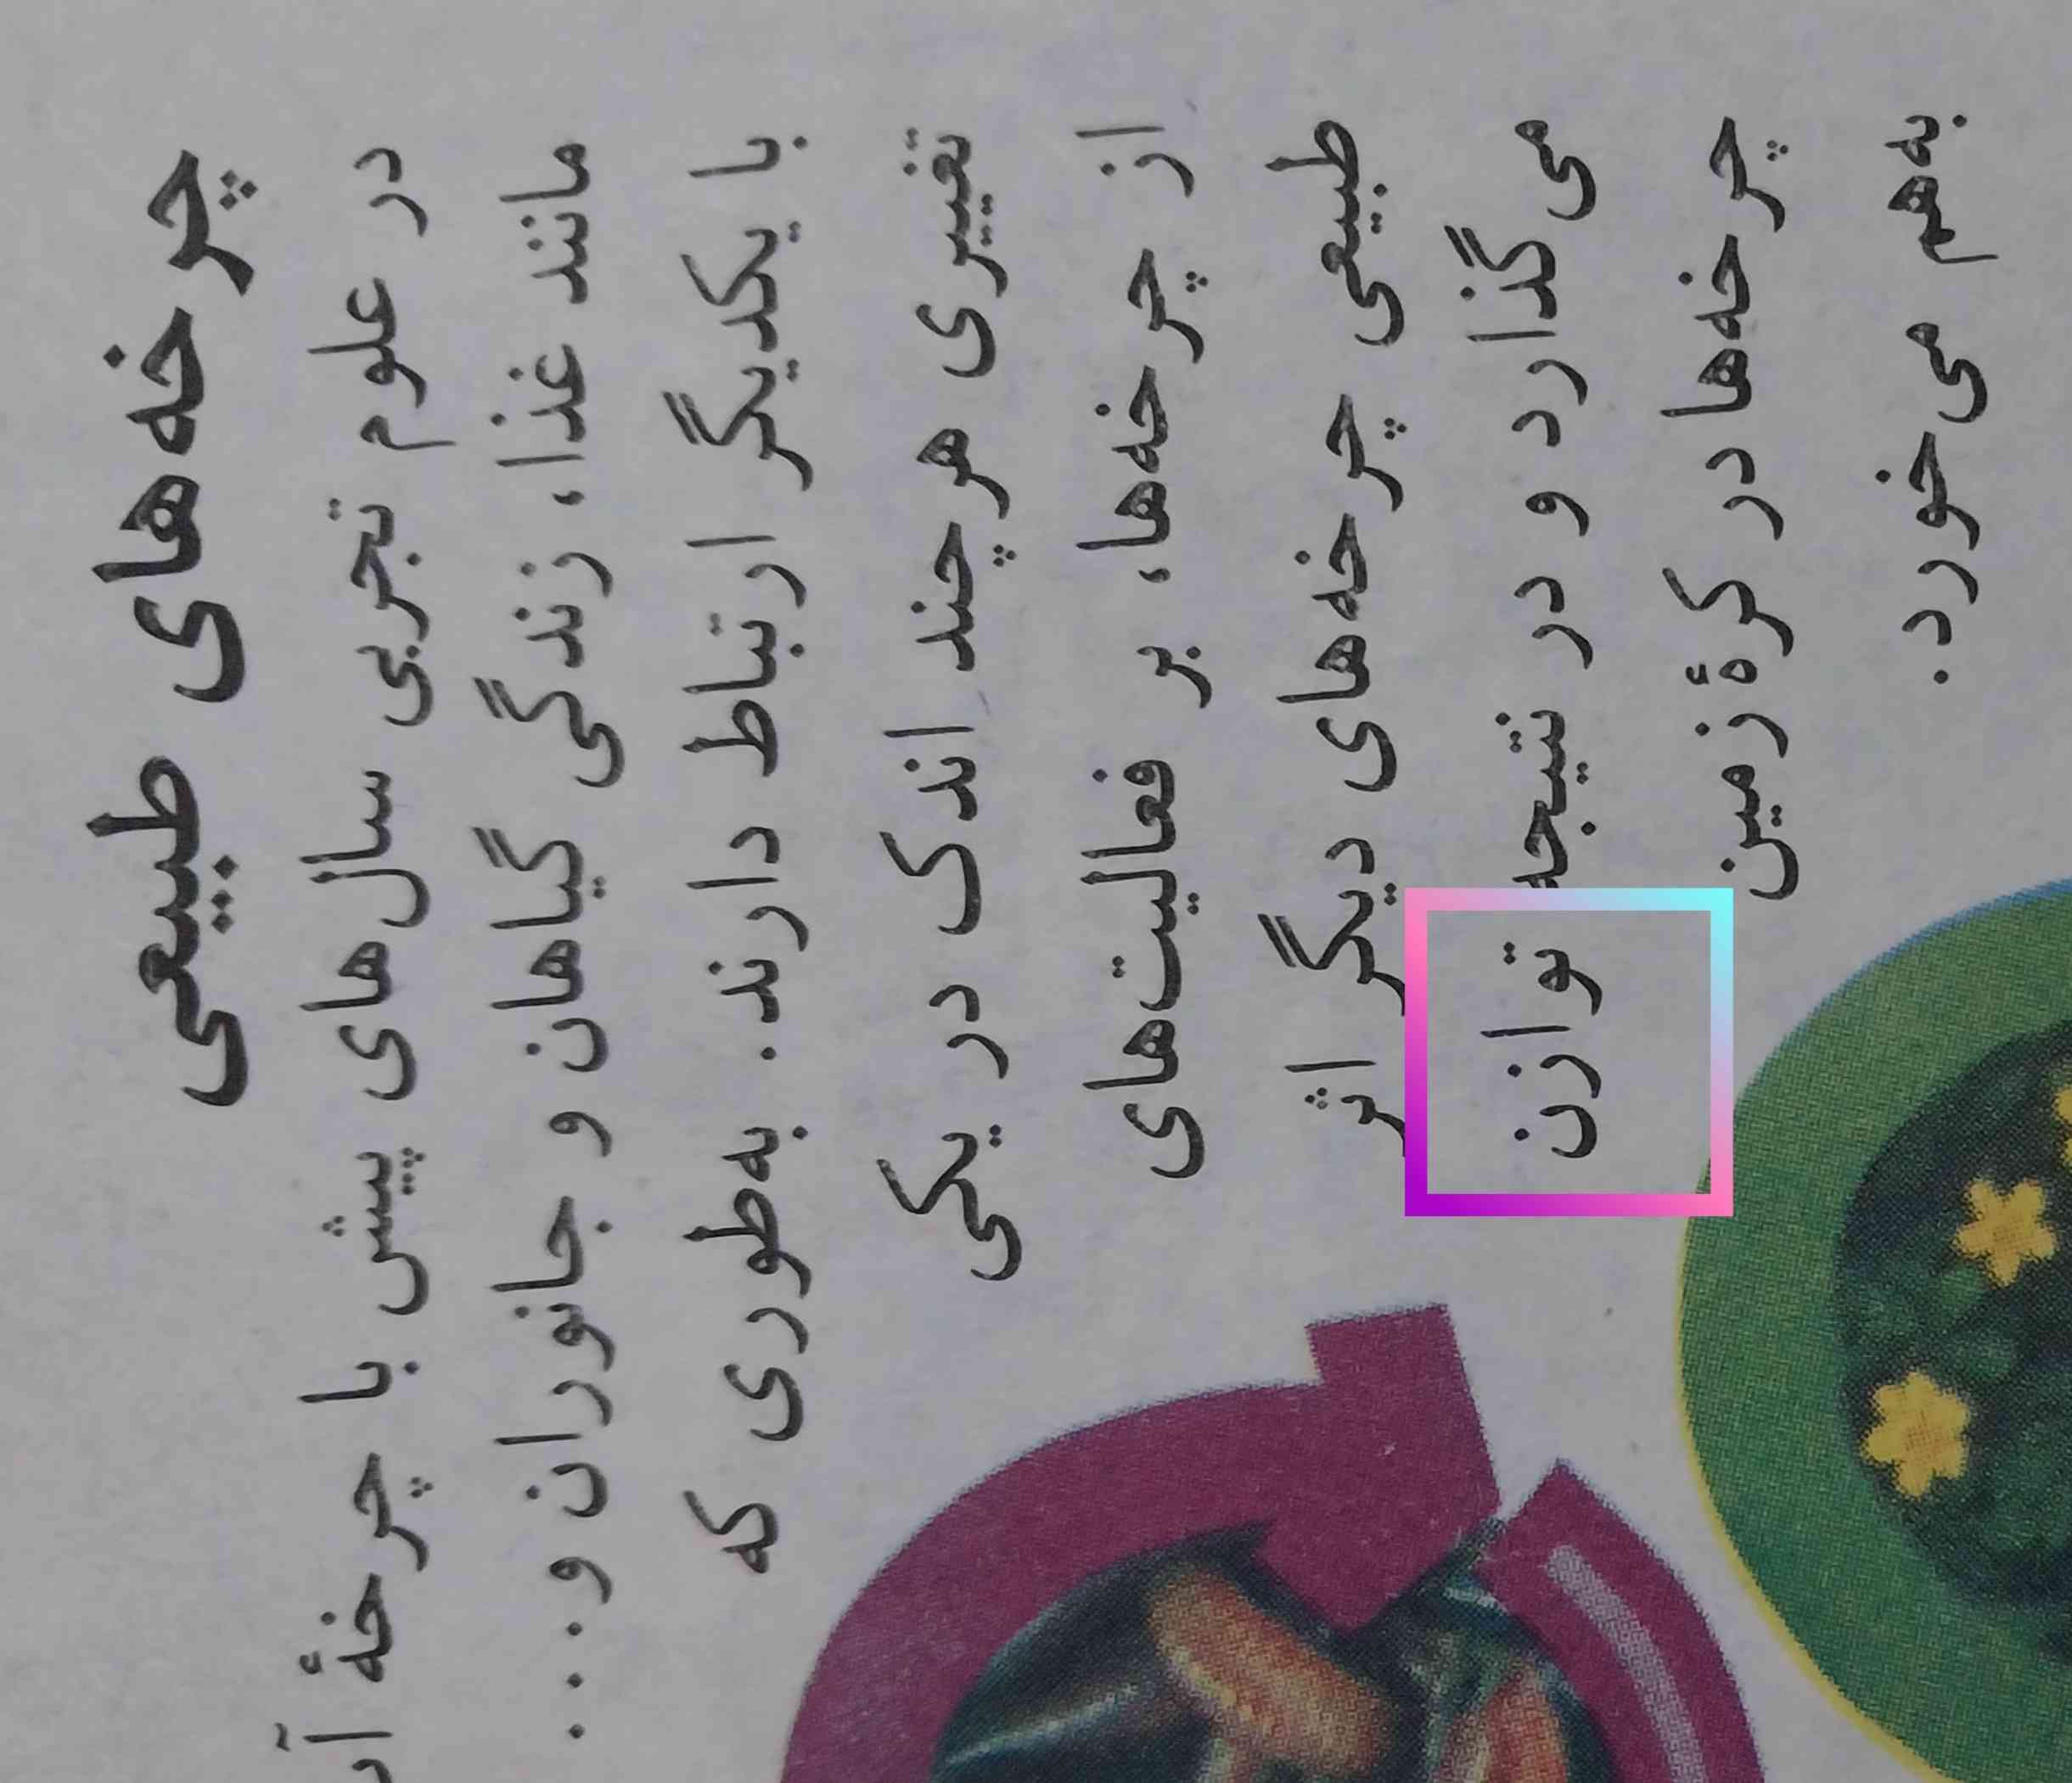 چرخه‌های طبیعی
در علوم تجربی سال‌های پیش با چرخهٔ
مانند غذا، زندگی گیاهان و جانوران و....
با یکدیگر ارتباط دارند. به‌طوری که
تغییری هرچند اندک در یکی
از چرخه‌ها، بر فعالیت‌های
طبیعی چرخه‌های دیگر اثر
می‌گذارد و در نتیجه توازن
چرخه‌ها در کرهٔ زمین
به‌هم می‌خورد.